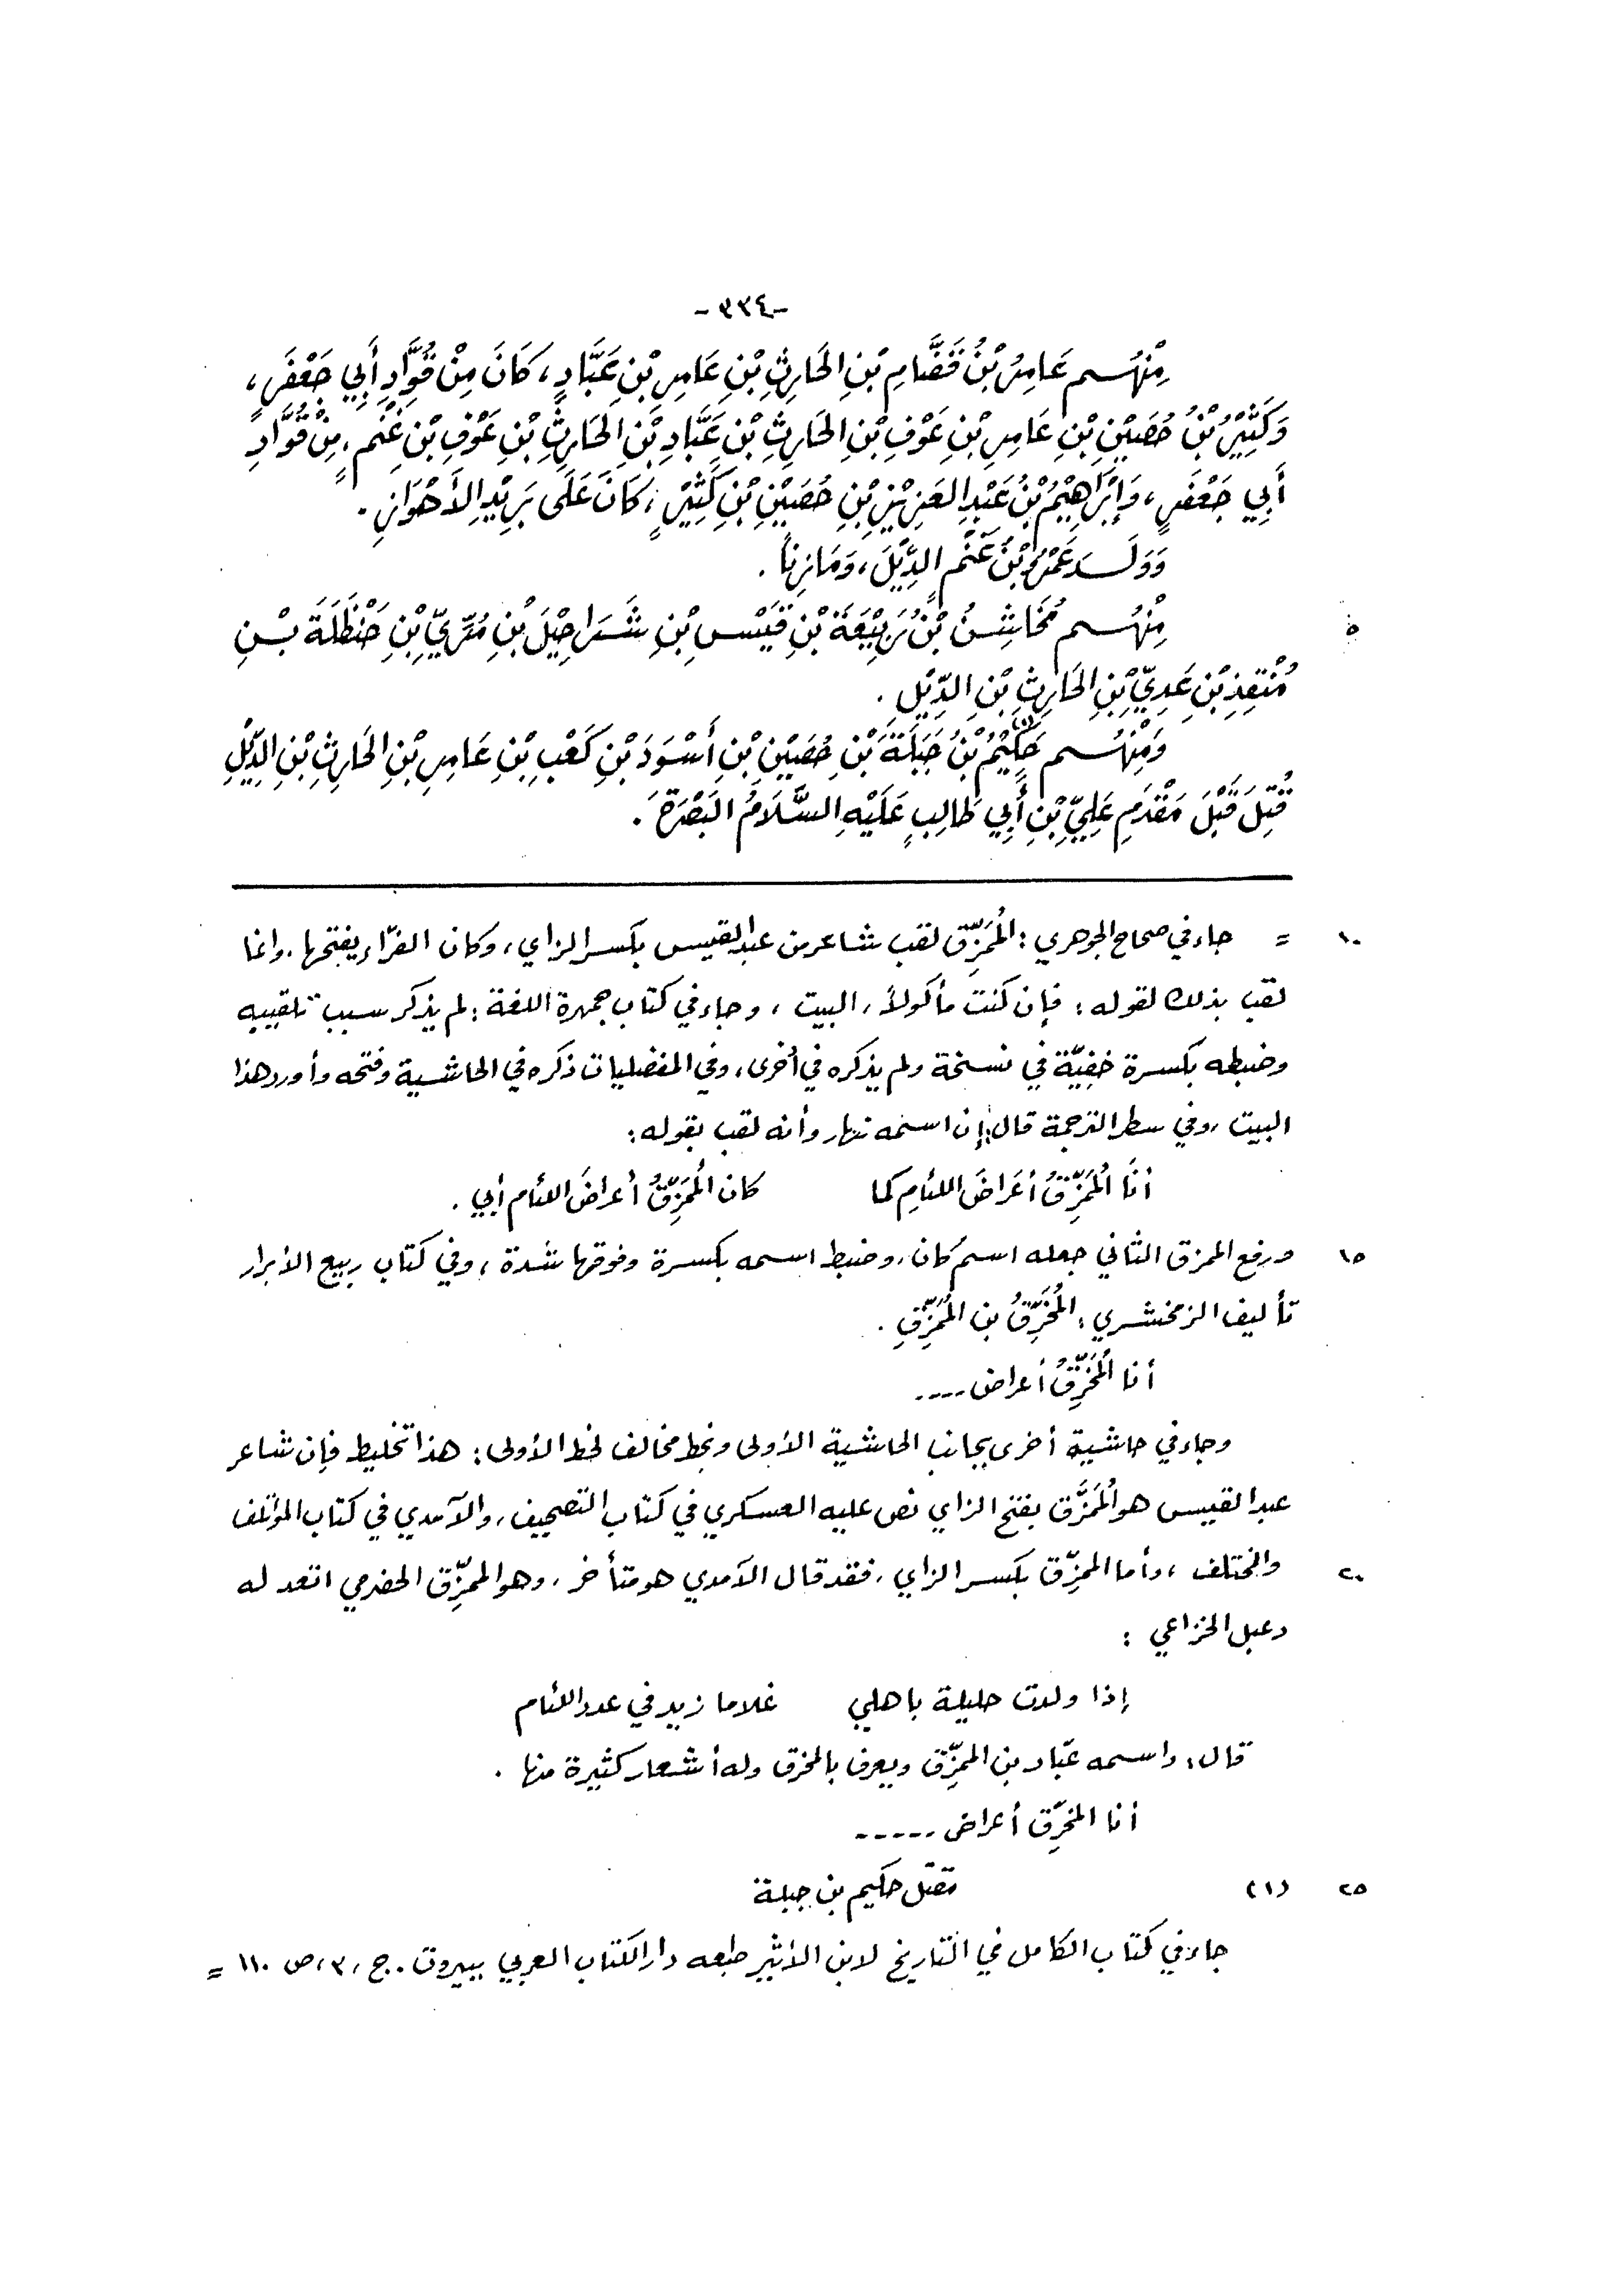 -٣٣٤-
مِنْهُم عَامِرُ بْنُ قَضَّامِ بْنِ الحَارِثِ بْنِ عَامِرِ بْنِ عَبَّادٍ، كَانَ مِنْ قُوَّادِ أَبِي جَعْفَرٍ،
وَكَثِيْرُ بْنُ حُصَيْنِ بْنِ عَامِرِ بْنِ عَوْفِ بْنِ الحَارِثِ بْنِ عَبَّادِ بْنِ الحَارِثِ بْنِ عَوْفِ بْنِ غَنْمٍ، مِنْ قُوَّادِ
أَبِي جَعْفَرٍ، وَإِبْرَاهِيْمُ بْنُ عَبْدِ العَزِيْزِ بْنِ حُصَيْنِ بْنِ كَثِيْرٍ، كَانَ عَلَى بَرِيْدِ الأَهْوَازِ.
وَوَلَدَ عَمْرُو بْنُ غَنْمٍ الدِّيْلَ، وَمَازِنَاً.
٥ مِنْهُم مُخَاشِنُ بْنُ رَبِيْعَةَ بْنِ قَيْسِ بْنِ شَرَاحِيْلَ بْنِ مُرِّيِّ بْنِ حَنْظَلَةَ بْنِ
مُنْقِذِ بْنِ عَدِيِّ بْنِ الحَارِثِ بْنِ الدِّيْلِ.
وَمِنْهُم حَكِيْمُ(١) بْنُ جَبَلَةَ بْنِ حُصَيْنِ بْنِ أَسْوَدَ بْنِ كَعْبِ بْنِ عَامِرِ بْنِ الحَارِثِ بْنِ الدِّيْلِ
قُتِلَ قَبْلَ مَقْدَمِ عَلِيِّ بْنِ أَبِي طَالِبٍ عَلَيْهِ السَّلَامُ البَصْرَةَ.
١٠ = جاء في صحاح الجوهري: المُمَزِّق لقب شاعر من عبد القيس بكسر الزاي، وكان الفرّاء يفتحها، وانما
لقب بذلك لقوله: فإن كنت مأكولاً، البيت، وجاء في كتاب جمهرة اللغة: لم يذكر سبب تلقيبه
وضبطه بكسرة خفيّة في نسخة ولم يذكره في أخرى، وفي المفضليات ذكره في الحاشية وفتحه وأورد هذا
البيت، وفي سطر الترجمة قال: إن اسمه نهار وأنه لقب بقوله:
أنَا المُمَزِّقُ أعَراضَ اللئامِ كما كان المُمَزِّقُ أعراضَ اللئام أبي.
١٥ ورفع الممزق الثاني جعله اسم كان، وضبط اسمه بكسرة وفوقها شدة، وفي كتاب ربيع الأبرار
تأليف الزمخشري: المُخَرِّقُ بن المُمَزِّقِ.
أنا المُخَرِّقُ أعراض ----
وجاء في حاشية أخرى بجانب الحاشية الأولى وبخط مخالف لخط الأولى: هذا تخليط فإن شاعر
عبد القيس هو المُمَزَّق بفتح الزاي نص عليه العسكري في كتاب التصحيف، والآمدي في كتاب المؤتلف
٢٠ والمختلف، وأما الممزِّق بكسر الزاي، فقد قال الآمدي هو متأخر، وهو الممزِّق الحضرمي انتعد له
دعبل الخزاعي:
إذا ولدت حليلة باهلي غلاما زيد في عدد اللئام
قال: واسمه عبّاد بن الممزِّق ويعرف بالمخرق وله أشعار كثيرة منها.
أنا المخرِّق أعراض -----
٢٥ (١) مقتل حكيم بن جبلة
جاء في كتاب الكامل في التاريخ لابن الأثير طبعه دار الكتاب العربي ببيروت. ج، ٣، ص ١١٠ =